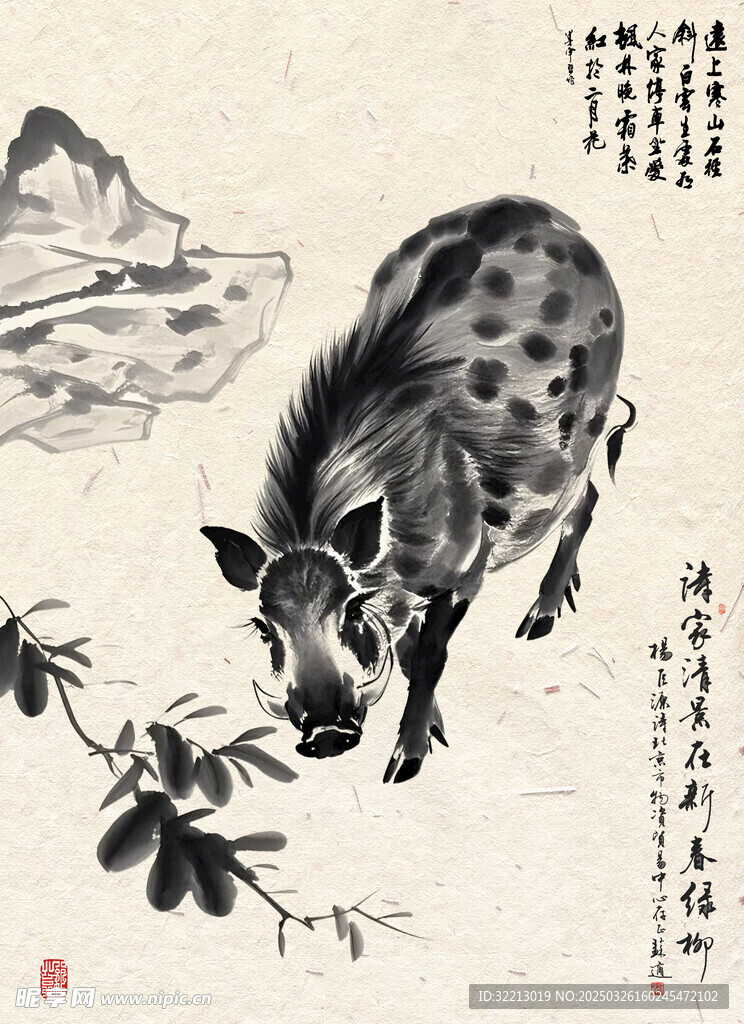 遠上寒山石徑
斜白雲生處有
人家停車坐愛
楓林晚霜葉
紅於二月花
詩家清景在新春绿柳
楊巨源詩北京市物資貿易中心存正蘇適
昵享网 www.nipic.cn
ID:32213019 NO:20250326160245472102